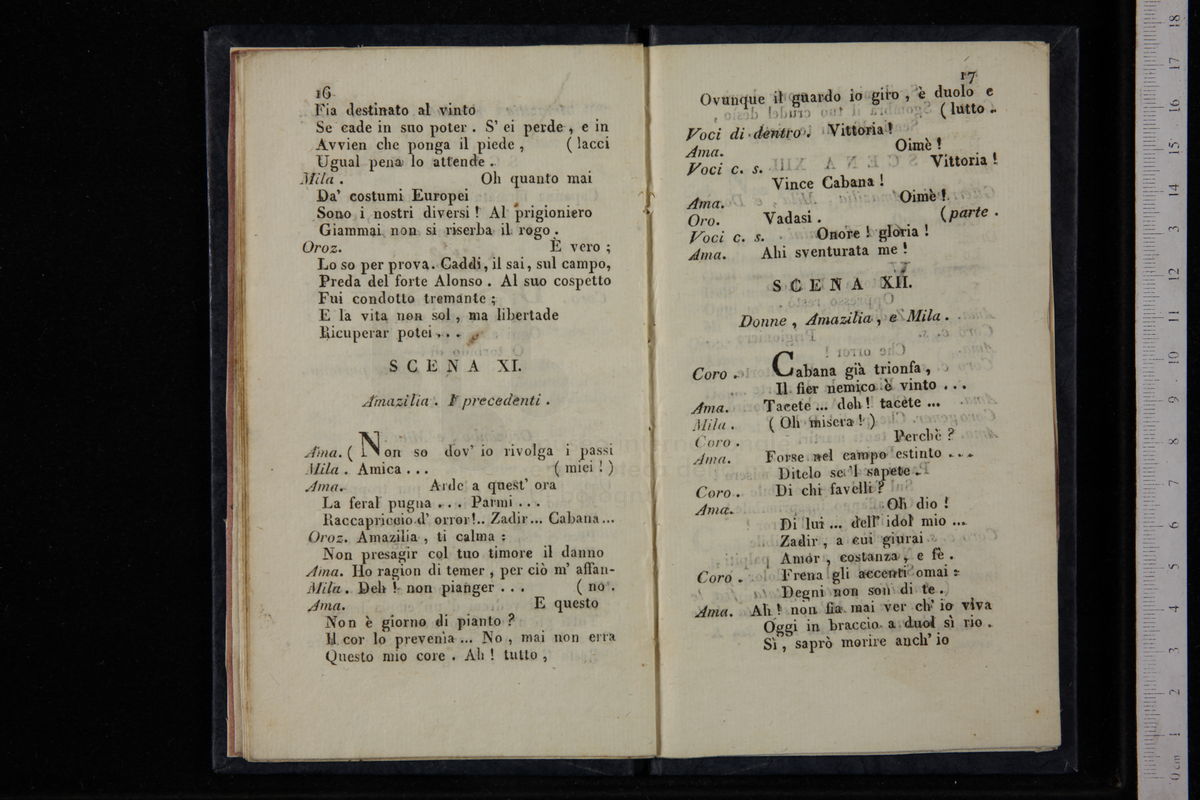 16
Fia destinato al vinto
Se cade in suo poter . S' ei perde , e in
Avvien che ponga il piede , ( lacci
Ugual pena lo attende .
Mila . Oh quanto mai
Da' costumi Europei
Sono i nostri diversi ! Al prigioniero
Giammai non si riserba il rogo .
Oroz. È vero ;
Lo so per prova. Caddi, il sai, sul campo,
Preda del forte Alonso . Al suo cospetto
Fui condotto tremante ;
E la vita non sol , ma libertade
Ricuperar potei . . .
SCENA XI.
Amazilia . I precedenti .
Ama. ( Non so dov' io rivolga i passi
Mila . Amica . . . ( miei ! )
Ama. Arde a quest' ora
La feral pugna . . . Parmi . . .
Raccapriccio d' orror!.. Zadir... Cabana...
Oroz. Amazilia , ti calma :
Non presagir col tuo timore il danno
Ama. Ho ragion di temer , per ciò m' affan-
Mila . Deh ! non pianger . . . ( no .
Ama. E questo
Non è giorno di pianto ?
Il cor lo prevenia ... No , mai non erra
Questo mio core . Ah ! tutto ,
17
Ovunque il guardo io giro , è duolo e
( lutto .
Voci di dentro . Vittoria !
Ama. Oimè !
Voci c. s. Vittoria !
Vince Cabana !
Ama. Oimè !
Oro. Vadasi . (parte .
Voci c. s. Onore ! gloria !
Ama. Ahi sventurata me !
SCENA XII.
Donne , Amazilia , e Mila .
Coro . Cabana già trionfa ,
Il fier nemico è vinto . . .
Ama. Tacete ... deh ! tacete ...
Mila . ( Oh misera ! )
Coro . Perchè ?
Ama. Forse nel campo estinto . . .
Ditelo se 'l sapete .
Coro . Di chi favelli ?
Ama. Oh dio !
Di lui ... dell' idol mio ...
Zadir , a cui giurai
Amor , costanza , e fè .
Coro . Frena gli accenti omai :
Degni non son di te .
Ama. Ah ! non fia mai ver ch' io viva
Oggi in braccio a duol sì rio .
Sì , saprò morire anch' io